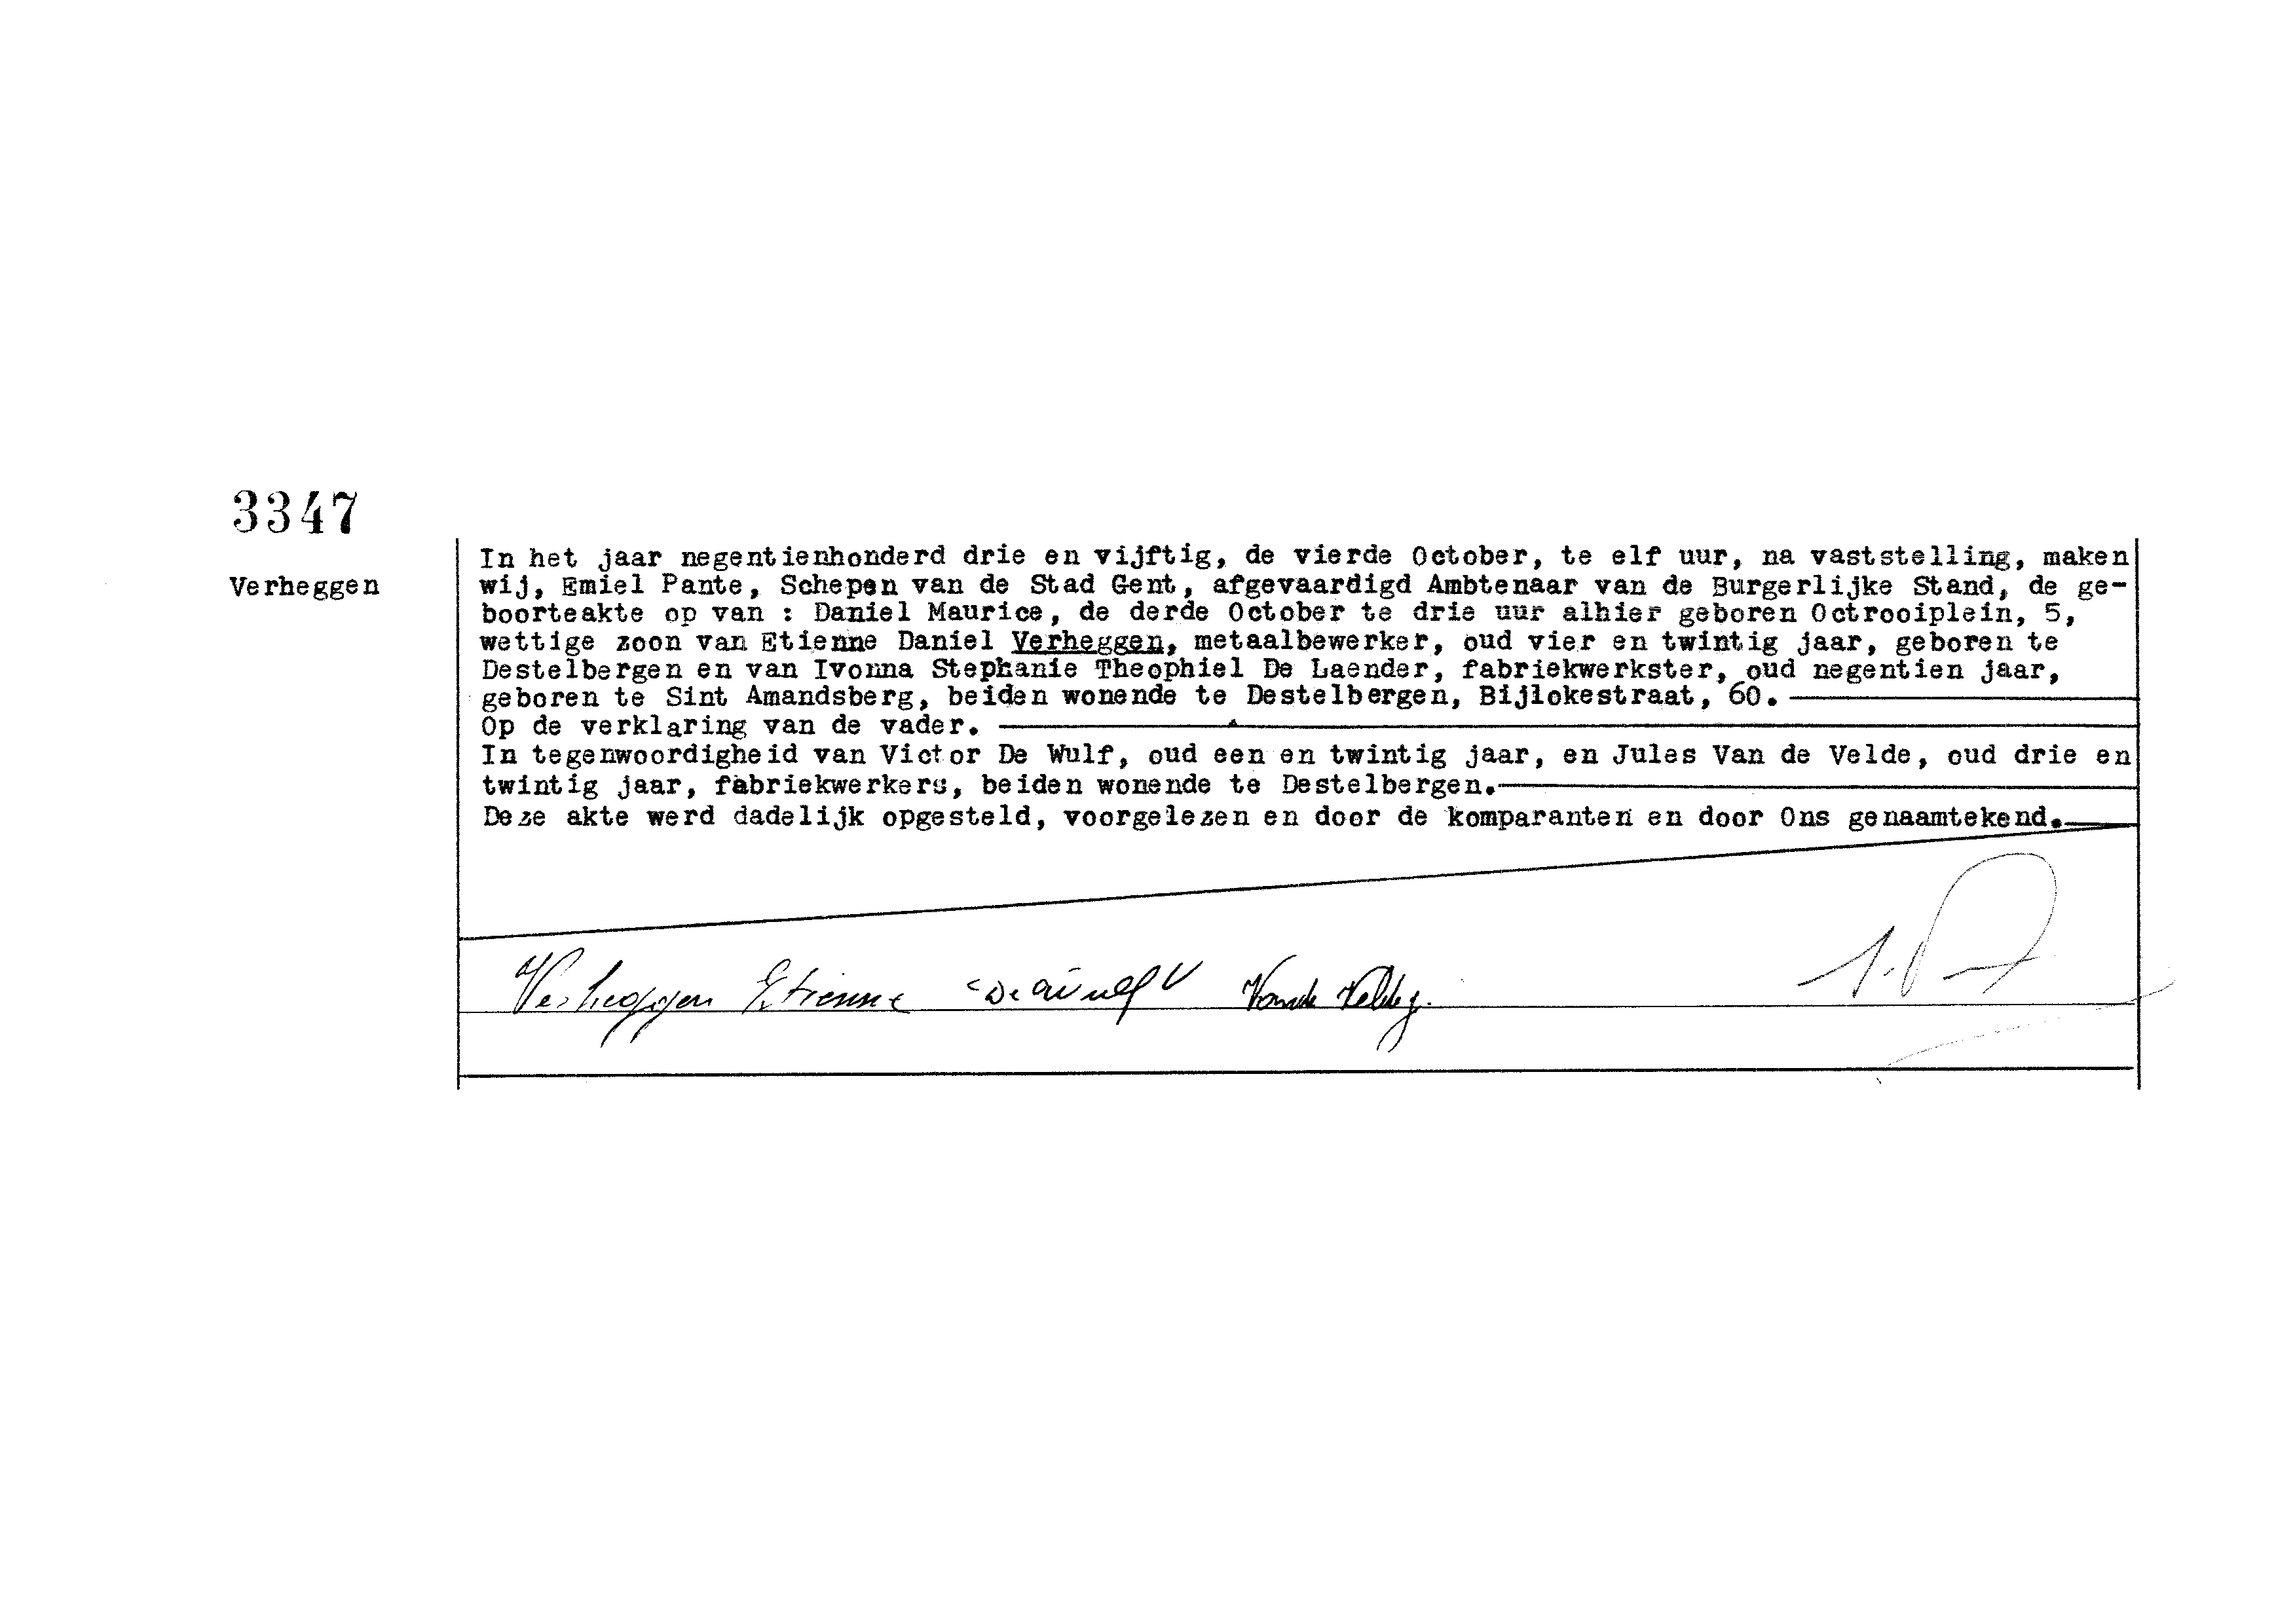 3347
Verheggen
In het jaar negentienhonderd drie en vijftig, de vierde October, te elf uur, na vaststelling, maken
wij, Emiel Pante, Schepen van de Stad Gent, afgevaardigd Ambtenaar van de Burgerlijke Stand, de ge-
boorteakte op van : Daniel Maurice, de derde October te drie uur alhier geboren Octrooiplein, 5,
wettige zoon van Etienne Daniel Verheggen, metaalbewerker, oud vier en twintig jaar, geboren te
Destelbergen en van Ivonna Stephanie Theophiel De Laender, fabriekwerkster, oud negentien jaar,
geboren te Sint Amandsberg, beiden wonende te Destelbergen, Bijlokestraat, 60.
Op de verklaring van de vader.
In tegenwoordigheid van Victor De Wulf, oud een en twintig jaar, en Jules Van de Velde, oud drie en
twintig jaar, fabriekwerkers, beiden wonende te Destelbergen.
Deze akte werd dadelijk opgesteld, voorgelezen en door de komparanten en door Ons genaamtekend.
Verheggen Etienne De Wulf V Vande Velde J.